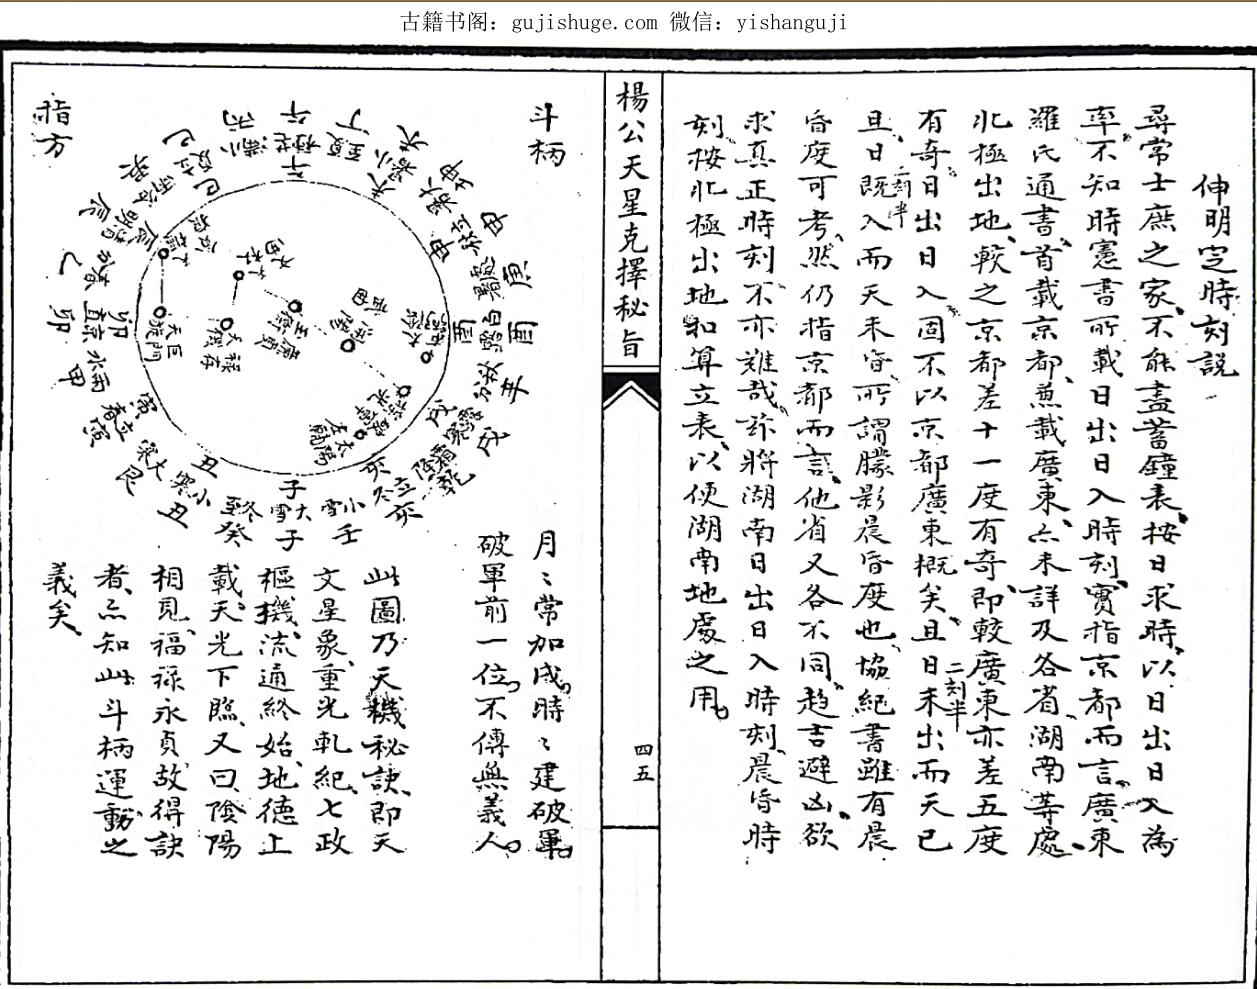 古籍书阁：gujishuge.com 微信：yishanguji
伸明定時刻説
尋常士庶之家、不能盡蓄鐘表、按日求時、以日出日入為
率、不知時憲書所載日出日入時刻、實指京都而言、廣東
羅氏通書、首載京都、兼載廣東、亦未詳及各省、湖南等處、
北極出地、較之京都差十一度有奇、即較廣東亦差五度
有奇、日出日入、固不以京都廣東概矣、且日未出而天已
二刻半
旦、日既入而天未昏、所謂朦影晨昏度也、協紀書雖有晨
二刻半
昏度可考、然仍指京都而言、他省又各不同、趨吉避凶、欲
求真正時刻、不亦難哉、茲將湖南日出日入時刻、晨昏時
刻、按北極出地和算立表、以便湖南地處之用、
楊公天星克擇秘旨
四五
斗柄
指方
午
丁
未
坤
申
庚
酉
辛
戌
乾
亥
壬
子
癸
丑
艮
寅
甲
卯
乙
辰
巽
巳
丙
小滿
夏至
小暑
立秋
處暑
白露
秋分
霜降
立冬
小雪
大雪
冬至
小寒
大寒
立春
雨水
春分
清明
天璇
巨門
祿存
月〻常加戌、時〻建破軍、
破軍前一位、不傳無義人、
此圖乃天機秘訣、即天
文星象、重光軋紀、七政
樞機、流通終始、地德上
載、天光下臨、又曰、陰陽
相見、福祿永貞、故、得訣
者、亦知此斗柄運動之
義矣、